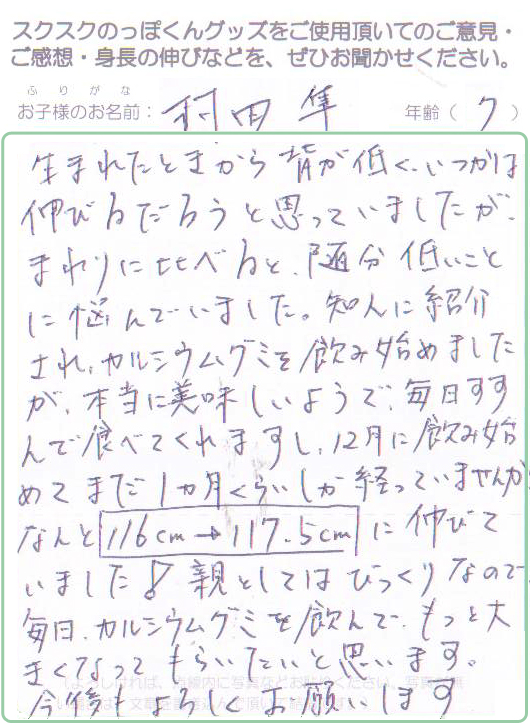 スクスクのっぽくんグッズをご使用頂いてのご意見・
ご感想・身長の伸びなどを、ぜひお聞かせください。
ふりがな
お子様のお名前： 村田 隼 年齢（ 7 ）
生まれたときから背が低く、いつかは
伸びるだろうと思っていましたが、
まわりに比べると、随分低いこと
に悩んでいました。知人に紹介
され、カルシウムグミを飲み始めました
が、本当に美味しいようで、毎日すす
んで食べてくれますし、12月に飲み始
めてまだ1ヵ月くらいしか経っていませんが
なんと 116cm→117.5cm に伸びて
いました！親としてはびっくりなので
毎日、カルシウムグミを飲んで、もっと大
きくなってもらいたいと思います。
今後もよろしくお願いします